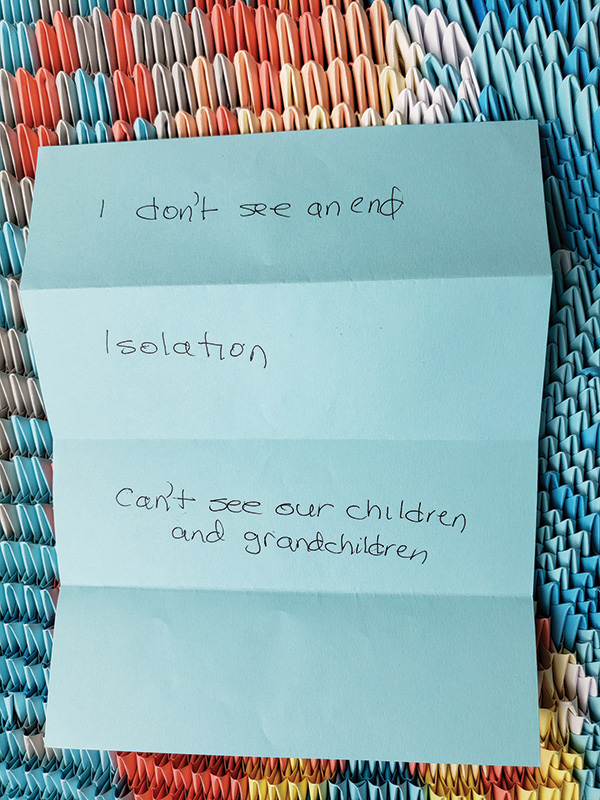 I don't see an end
Isolation
Can't see our children
and grandchildren